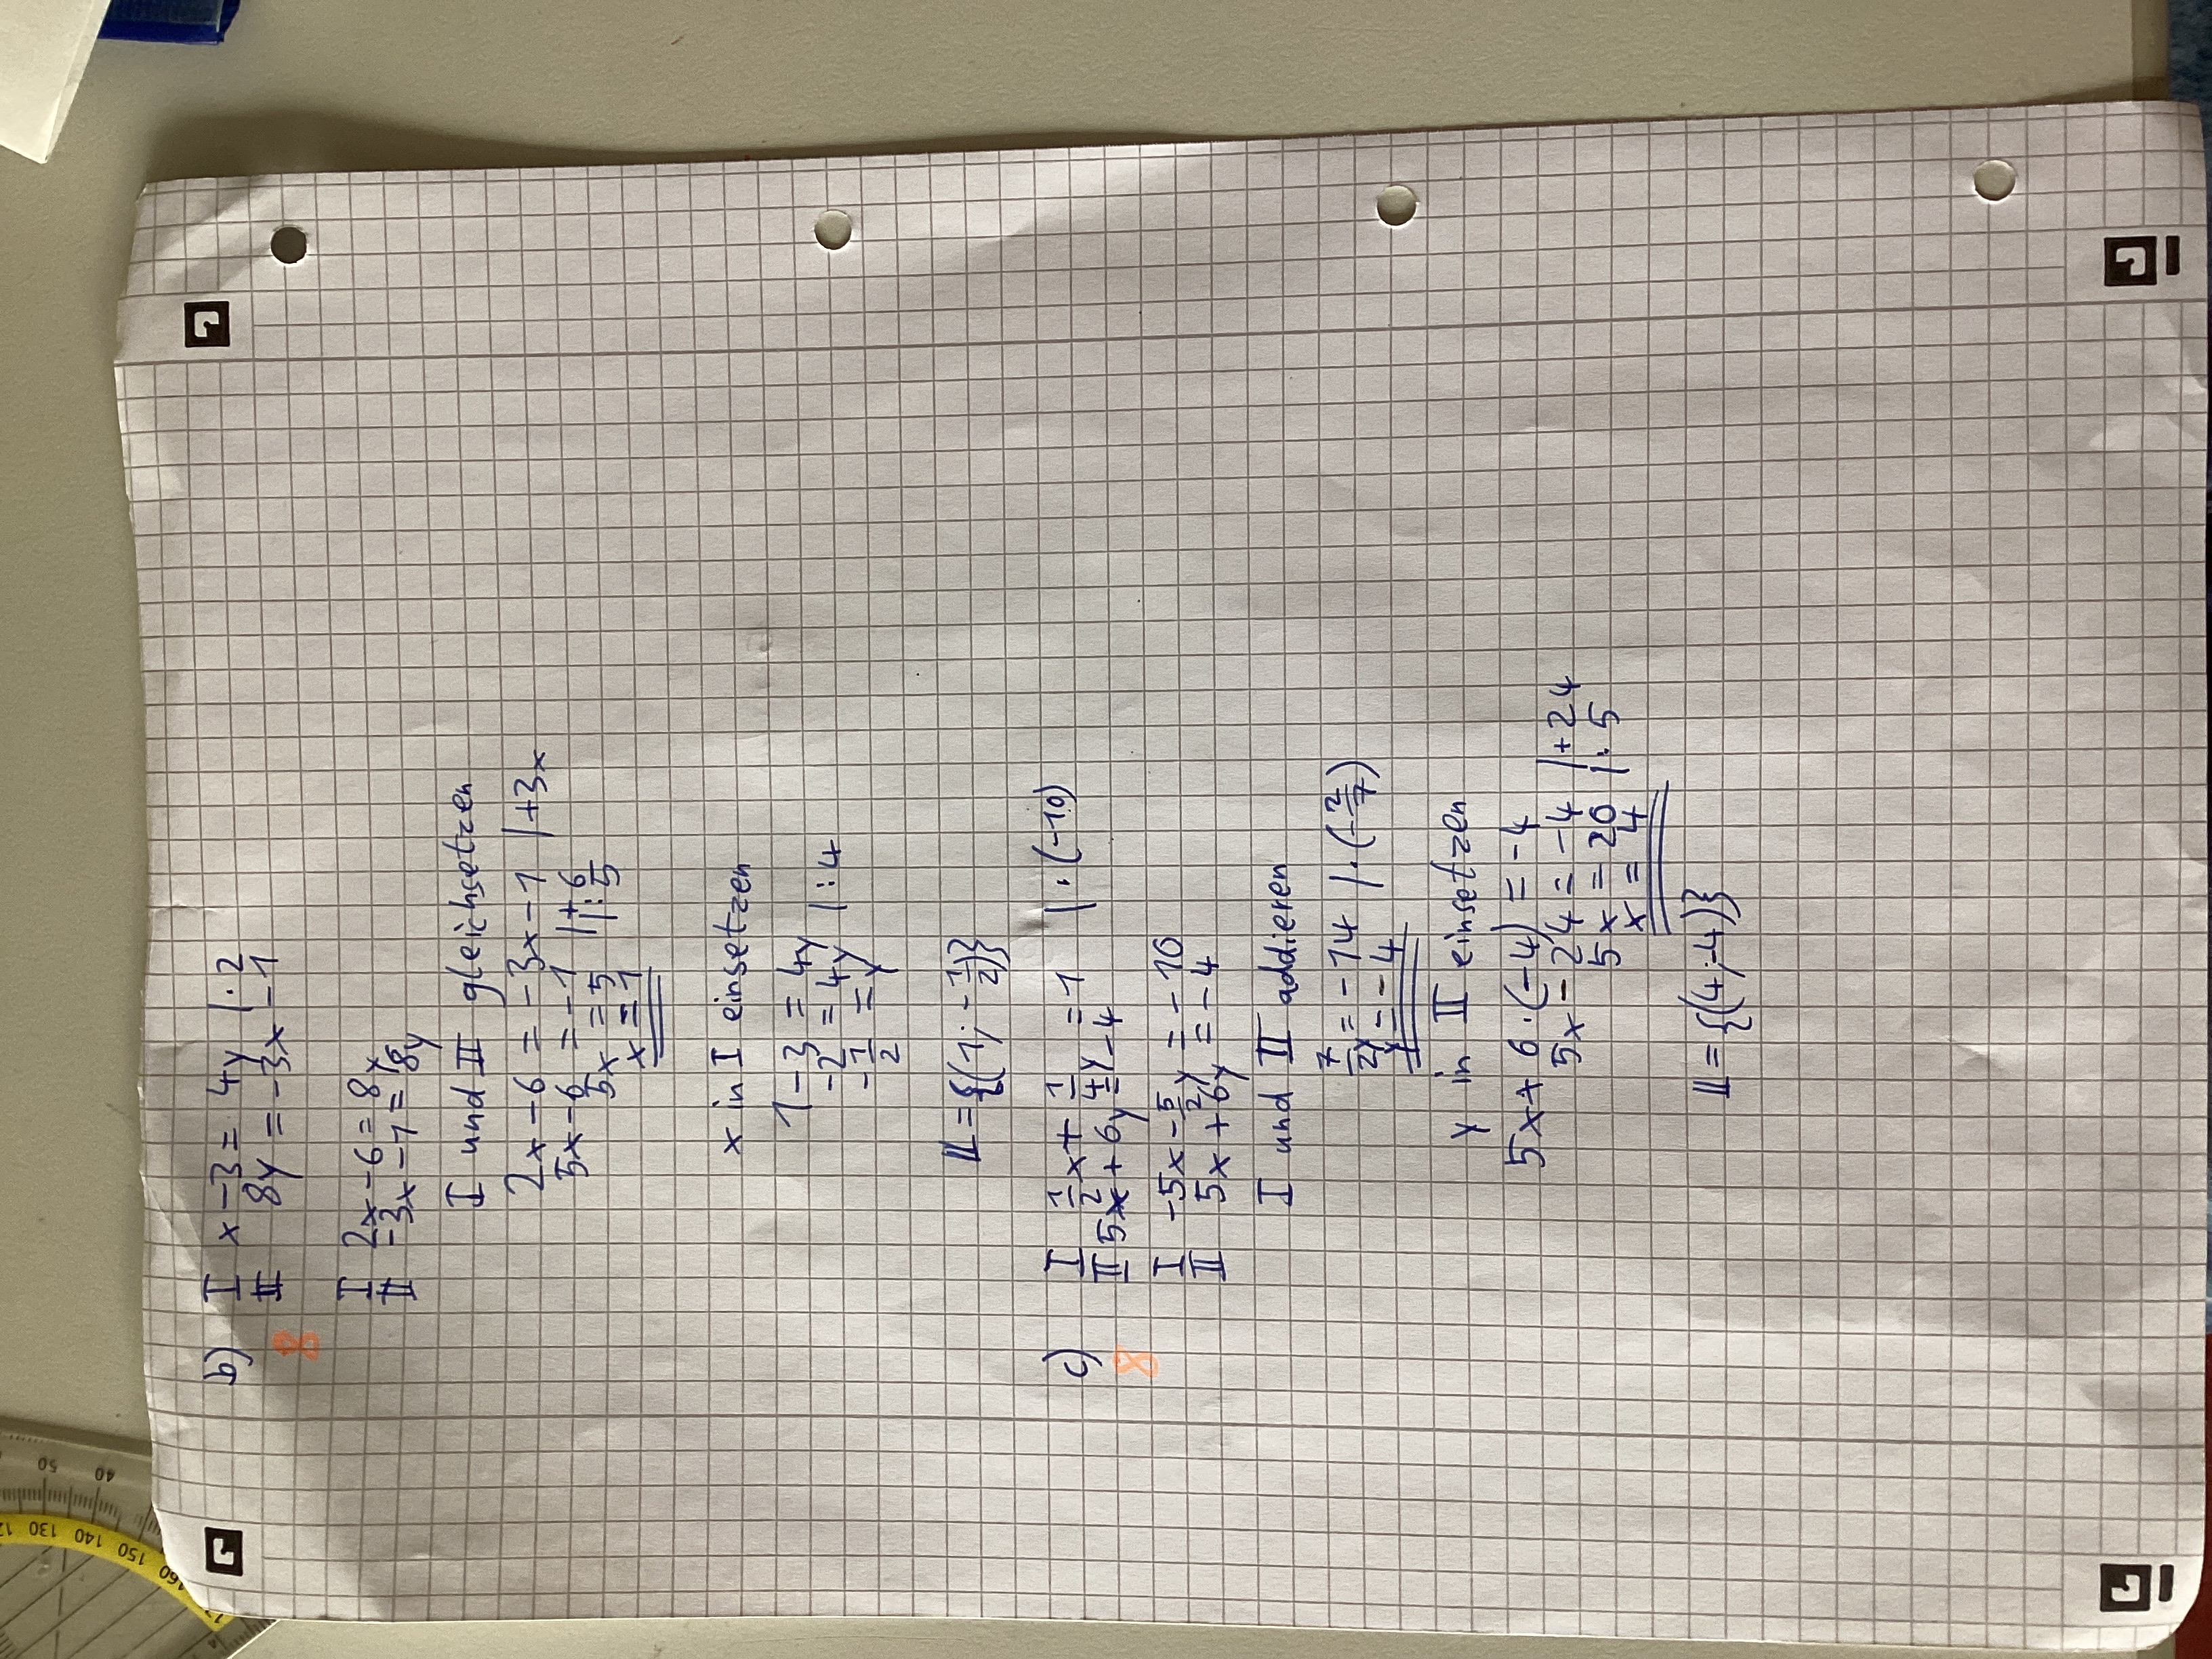 b) I x-3 = 4y |·2
8 II 8y = -3x-1
I 2x-6=8y
II -3x-1=8y
I und II gleichsetzen
2x-6 = -3x-1 |+3x
5x-6 = -1 |+6
5x = 5 |:5
x = 1
x in I einsetzen
1-3 = 4y
-2 = 4y |:4
-1/2 = y
𝕃 = {(1; -1/2)}
c) I 1/2x + 1/4y = 1 |·(-10)
8 II 5x + 6y = -4
I -5x - 5/2y = -10
II 5x + 6y = -4
I und II addieren
7/2y = -14 |·(-2/7)
y = -4
y in II einsetzen
5x + 6·(-4) = -4
5x - 24 = -4 |+24
5x = 20 |:5
x = 4
𝕃 = {(4;-4)}
40
50
130
140
150
160